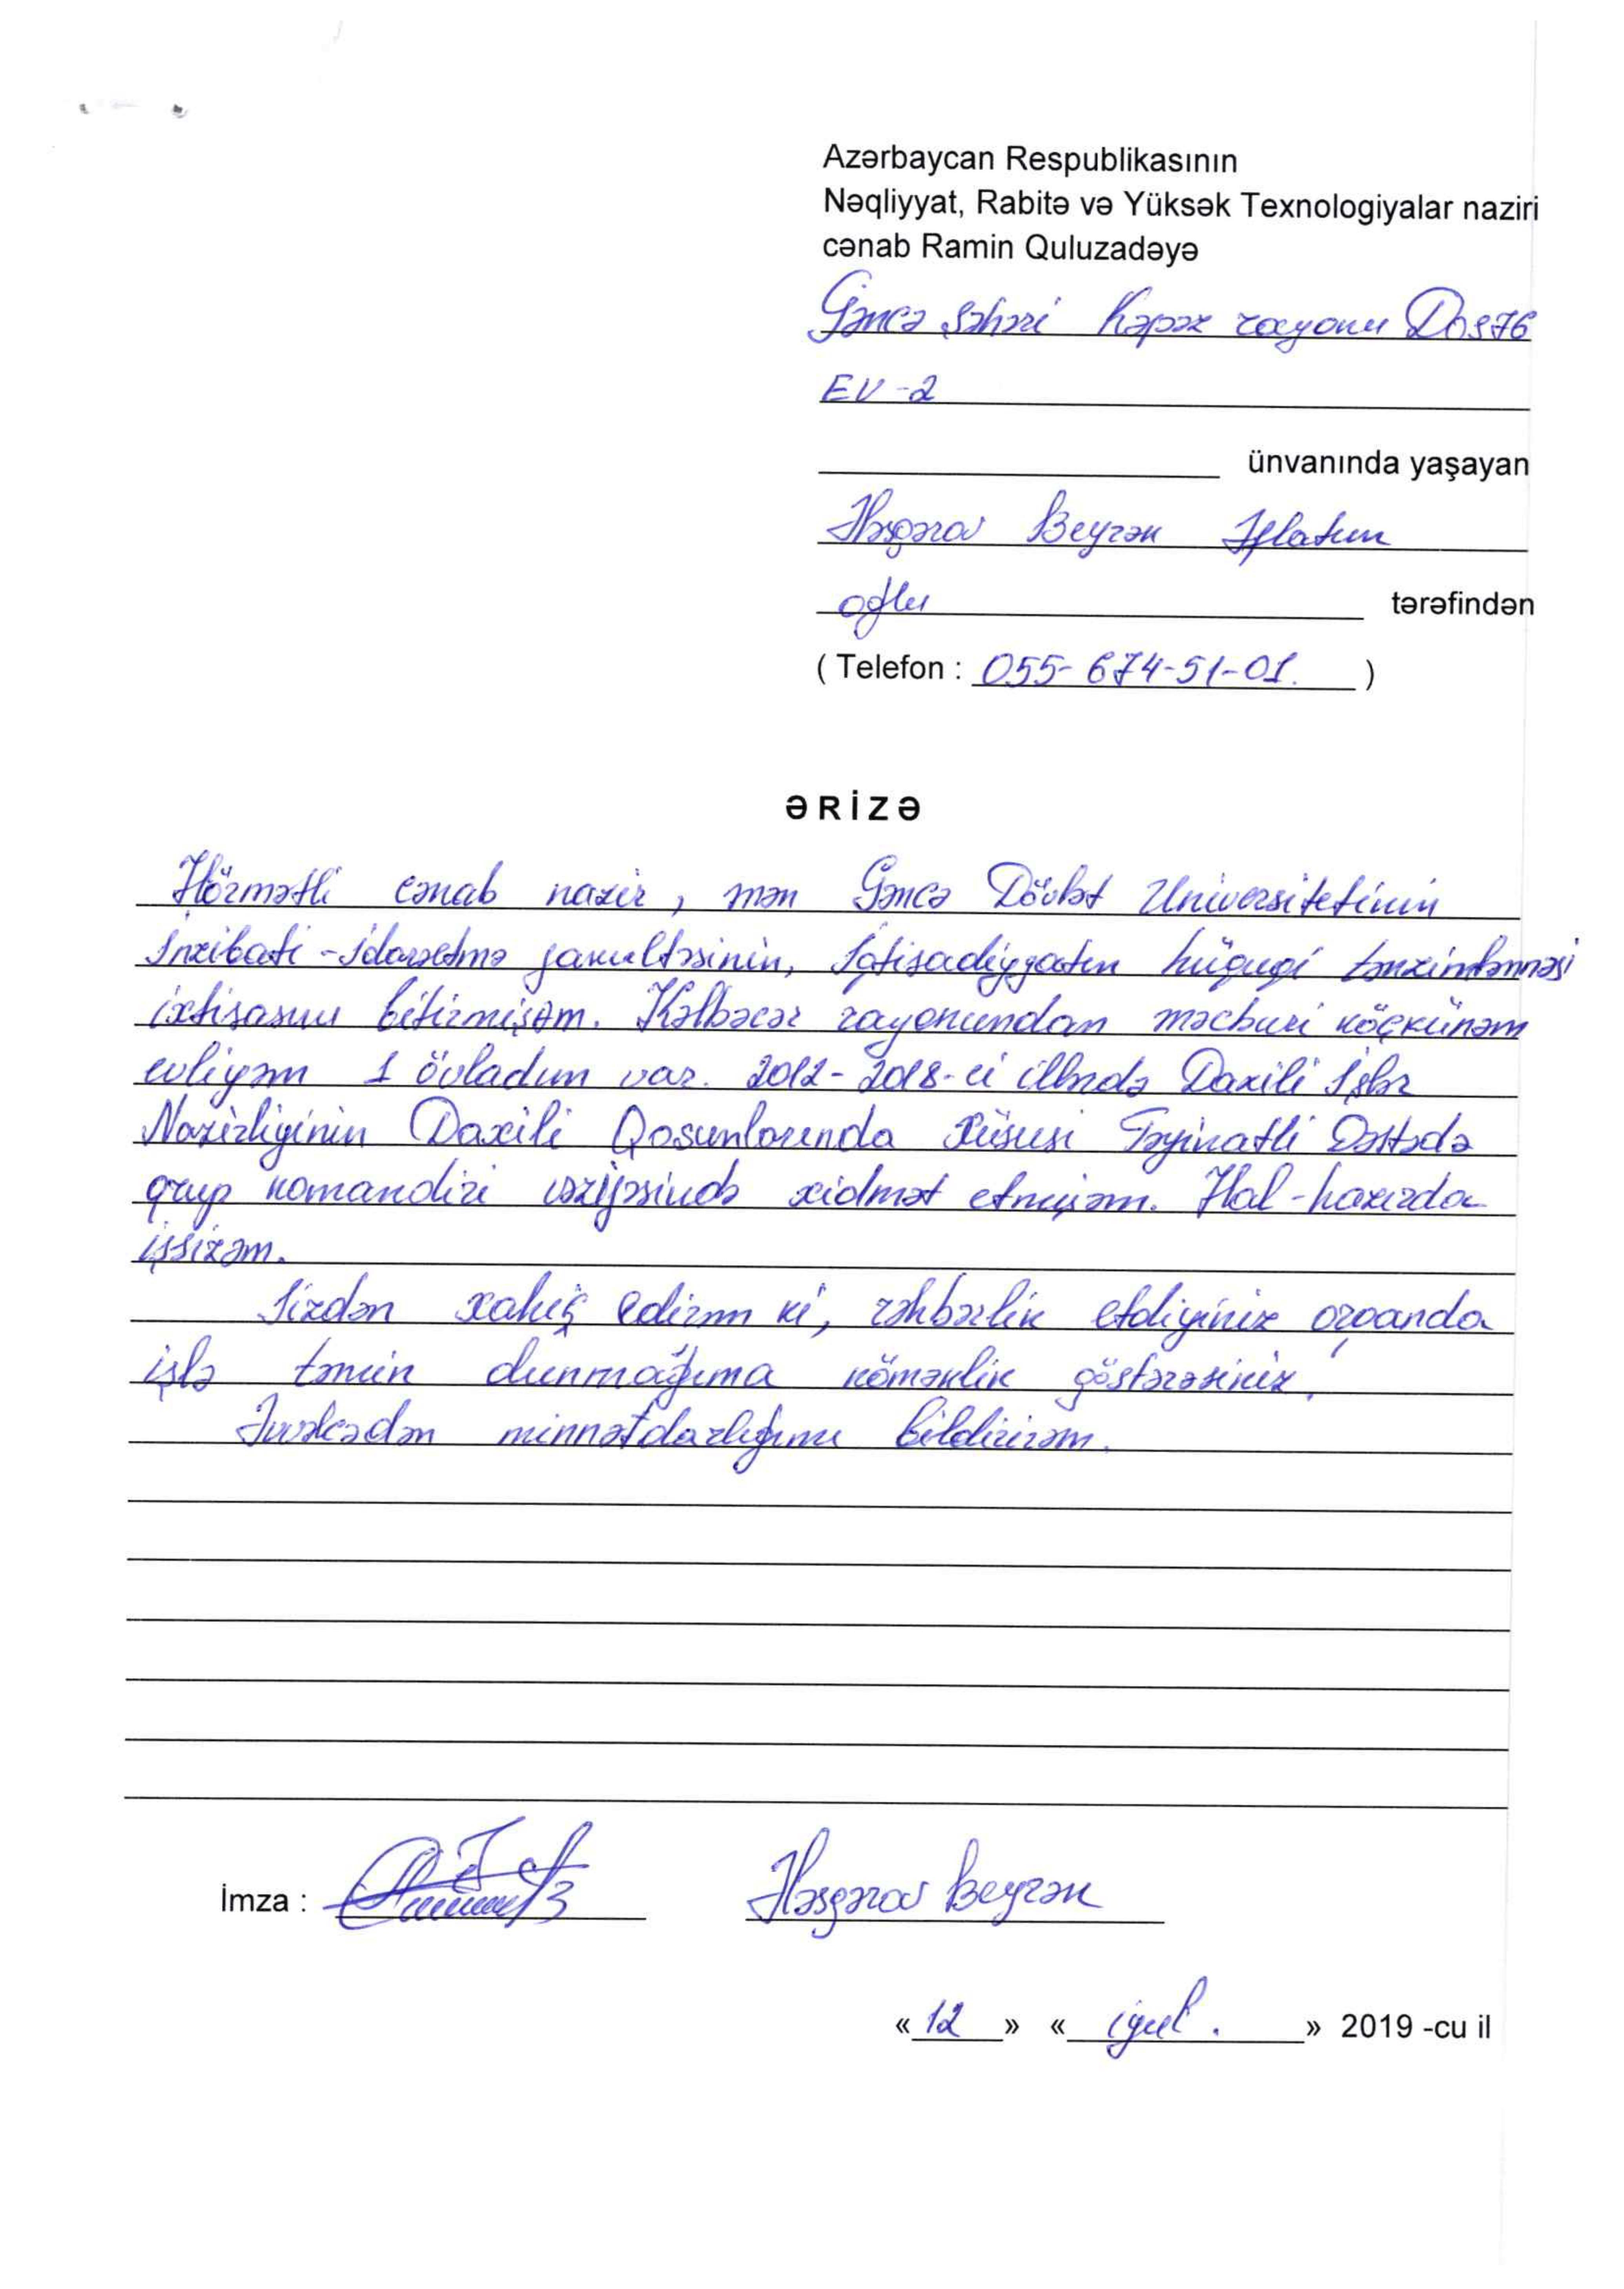 Azərbaycan Respublikasının
Nəqliyyat, Rabitə və Yüksək Texnologiyalar naziri
cənab Ramin Quluzadəyə
Gəncə şəhəri Kəpəz rayonu Dos76
EV-2
ünvanında yaşayan
Həsgərov Beyrək İflatun
oğlu tərəfindən
( Telefon : 055-674-51-01. )
ƏRİZƏ
Hörmətli cənab nazir, mən Gəncə Dövlət Universitetinin
İnzibati-idarəetmə fakultəsinin, İqtisadiyyatın hüquqi tənzimlənməsi
ixtisasını bitirmişəm. Kəlbəcər rayonundan məcburi köçkünəm
evliyəm 1 övladım var. 2012-2018-ci illərdə Daxili İşlər
Nazirliyinin Daxili Qoşunlarında Xüsusi Təyinatli Dəstədə
qrup komandiri vəzifəsində xidmət etmişəm. Hal-hazırda
işsizəm.
Sizdən xahiş edirəm ki, rəhbərlik etdiyiniz orqanda
işlə təmin olunmağıma köməklik göstərəsiniz.
Əvvəlcədən minnətdarlığımı bildirirəm.
İmza : Həsgərov Beyrək
« 12 » « iyul. » 2019 -cu il